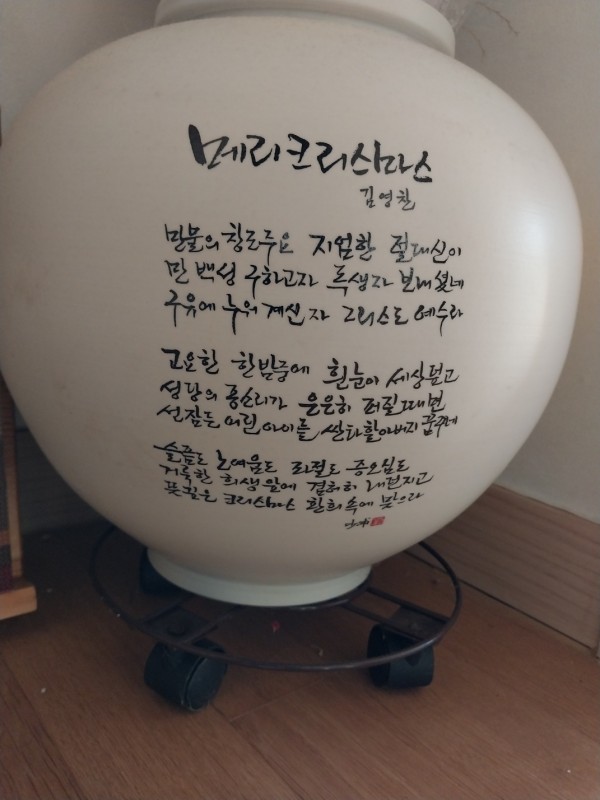 메리크리스마스
김영철
만물의 창조주요 지엄한 절대신이
만 백성 구하고자 독생자 보내셨네
구유에 누워계신 자 그리스도 예수라
고요한 한밤중에 흰눈이 세상덮고
성당의 종소리가 은은히 퍼질때면
선잠든 어린 아이들 싼타할아버지 꿈꾸네
슬픔도 노여움도 좌절도 증오심도
거룩한 희생앞에 겸허히 내던지고
뜻깊은 크리스마스 환희속에 맞으라